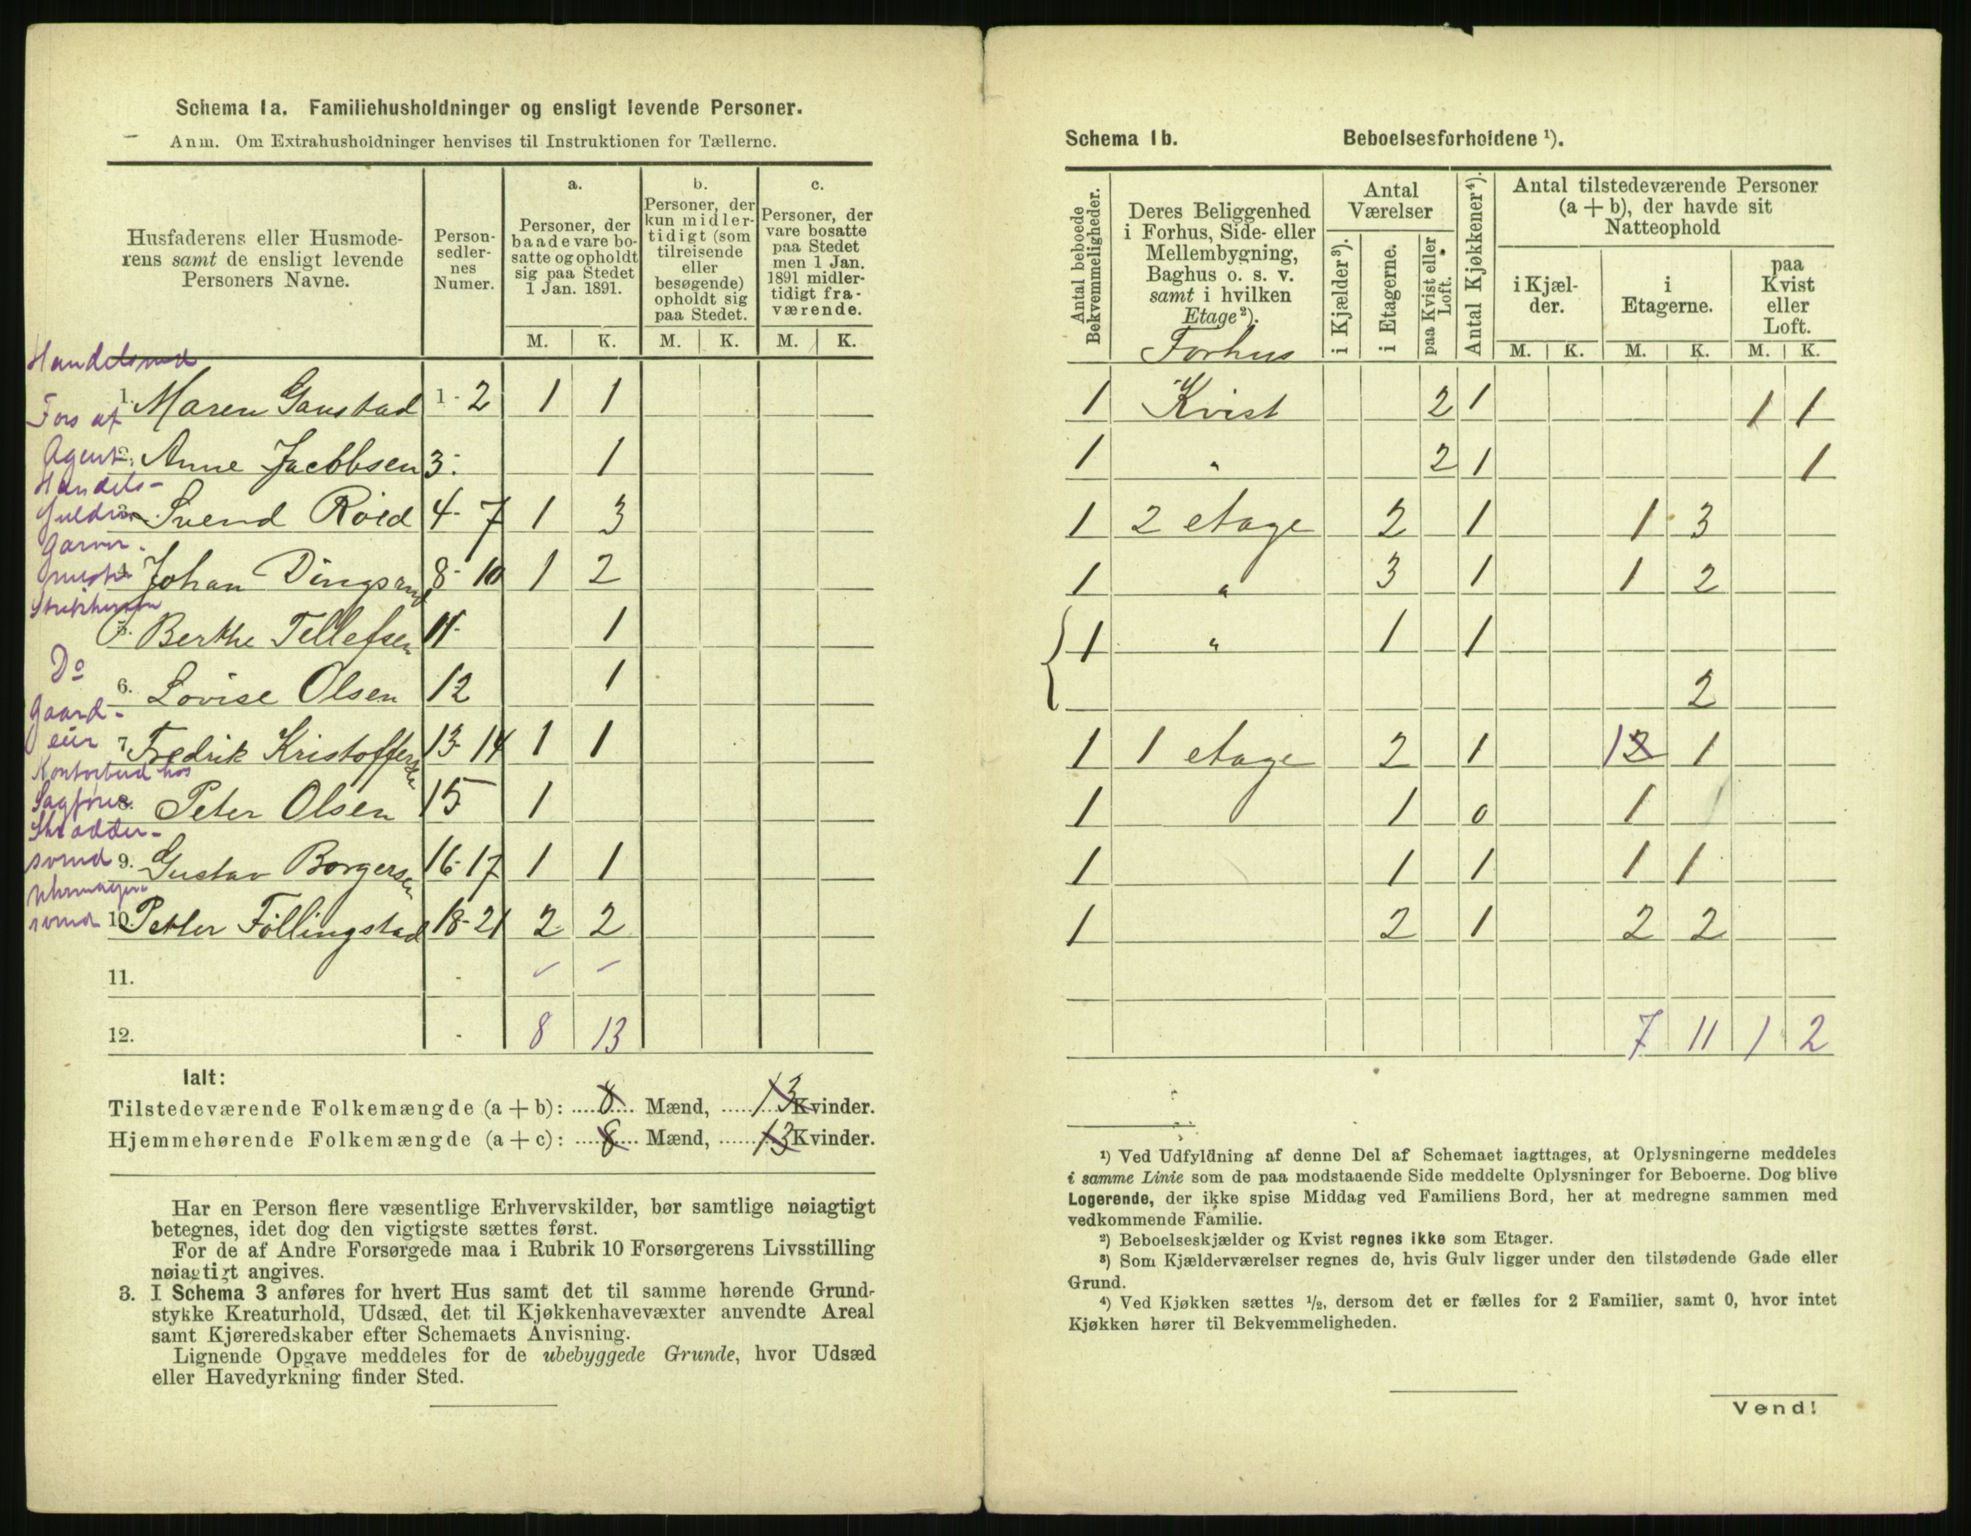 Schema 1a. Familiehusholdninger og ensligt levende Personer.
Anm. Om Extrahusholdninger henvises til Instruktionen for Tællerne.
Husfaderens eller Husmoderens samt de ensligt levende Personers Navne.
Personsedlernes Numer.
a. Personer, der baade vare bosatte og opholdt sig paa Stedet 1 Jan. 1891.
b. Personer, der kun midlertidigt (som tilreisende eller besøgende) opholdt sig paa Stedet.
c. Personer, der vare bosatte paa Stedet men 1 Jan. 1891 midlertidigt fraværende.
M. K. M. K. M. K.
1. Maren Ganstad 1-2 1 1
Fors af
2. Anne Jacobsen 3. 1
Agent
Handels-
3. Svend Röed 4-7 1 3
Garver
4. Johan Dingsand 8-10 1 2
5. Berthe Tellefsen 11 1
Do
6. Lovise Olsen 12 1
Gaard-
eier
7. Fredrik Kristoffersen 13-14 1 1
Kontorbud hos
Sagfører
8. Peter Olsen 15 1
Skrædder-
svend
9. Gustav Borgersen 16-17 1 1
svend
10. Petter Föllingstad 18-21 2 2
11.
12. 8 13
Ialt:
Tilstedeværende Folkemængde (a + b): 8 Mænd, 13 Kvinder.
Hjemmehørende Folkemængde (a + c): 8 Mænd, 13 Kvinder.
Har en Person flere væsentlige Erhvervskilder, bør samtlige nøiagtigt
betegnes, idet dog den vigtigste sættes først.
For de af Andre Forsørgede maa i Rubrik 10 Forsørgerens Livsstilling
nøiagtigt angives.
3. I Schema 3 anføres for hvert Hus samt det til samme hørende Grund-
stykke Kreaturhold, Udsæd, det til Kjøkkenhavevæxter anvendte Areal
samt Kjøreredskaber efter Schemaets Anvisning.
Lignende Opgave meddeles for de ubebyggede Grunde, hvor Udsæd
eller Havedyrkning finder Sted.
Schema 1b. Beboelsesforholdene ¹).
Antal beboede Bekvemmeligheder.
Deres Beliggenhed i Forhus, Side- eller Mellembygning, Baghus o. s. v. samt i hvilken Etage²).
Antal Værelser
i Kjælder³).
i Etagerne.
paa Kvist eller Loft.
Antal Kjøkkener⁴).
Antal tilstedeværende Personer (a + b), der havde sit Natteophold
i Kjælder.
i Etagerne.
paa Kvist eller Loft.
M. K. M. K. M. K.
Forhus
1 Kvist 2 1 1 1
1 " 2 1 1
1 2 etage 2 1 1 3
1 " 3 1 1 2
1 " 1 1
2
1 1 etage 2 1 1 2 1
1 1 0 1 1
1 1 1 1 1
1 2 1 2 2
7 11 1 2
¹) Ved Udfyldning af denne Del af Schemaet iagttages, at Oplysningerne meddeles
i samme Linie som de paa modstaaende Side meddelte Oplysninger for Beboerne. Dog blive
Logerende, der ikke spise Middag ved Familiens Bord, her at medregne sammen med
vedkommende Familie.
²) Beboelseskjælder og Kvist regnes ikke som Etager.
³) Som Kjælderværelser regnes de, hvis Gulv ligger under den tilstødende Gade eller
Grund.
⁴) Ved Kjøkken sættes ½, dersom det er fælles for 2 Familier, samt 0, hvor intet
Kjøkken hører til Bekvemmeligheden.
Vend!